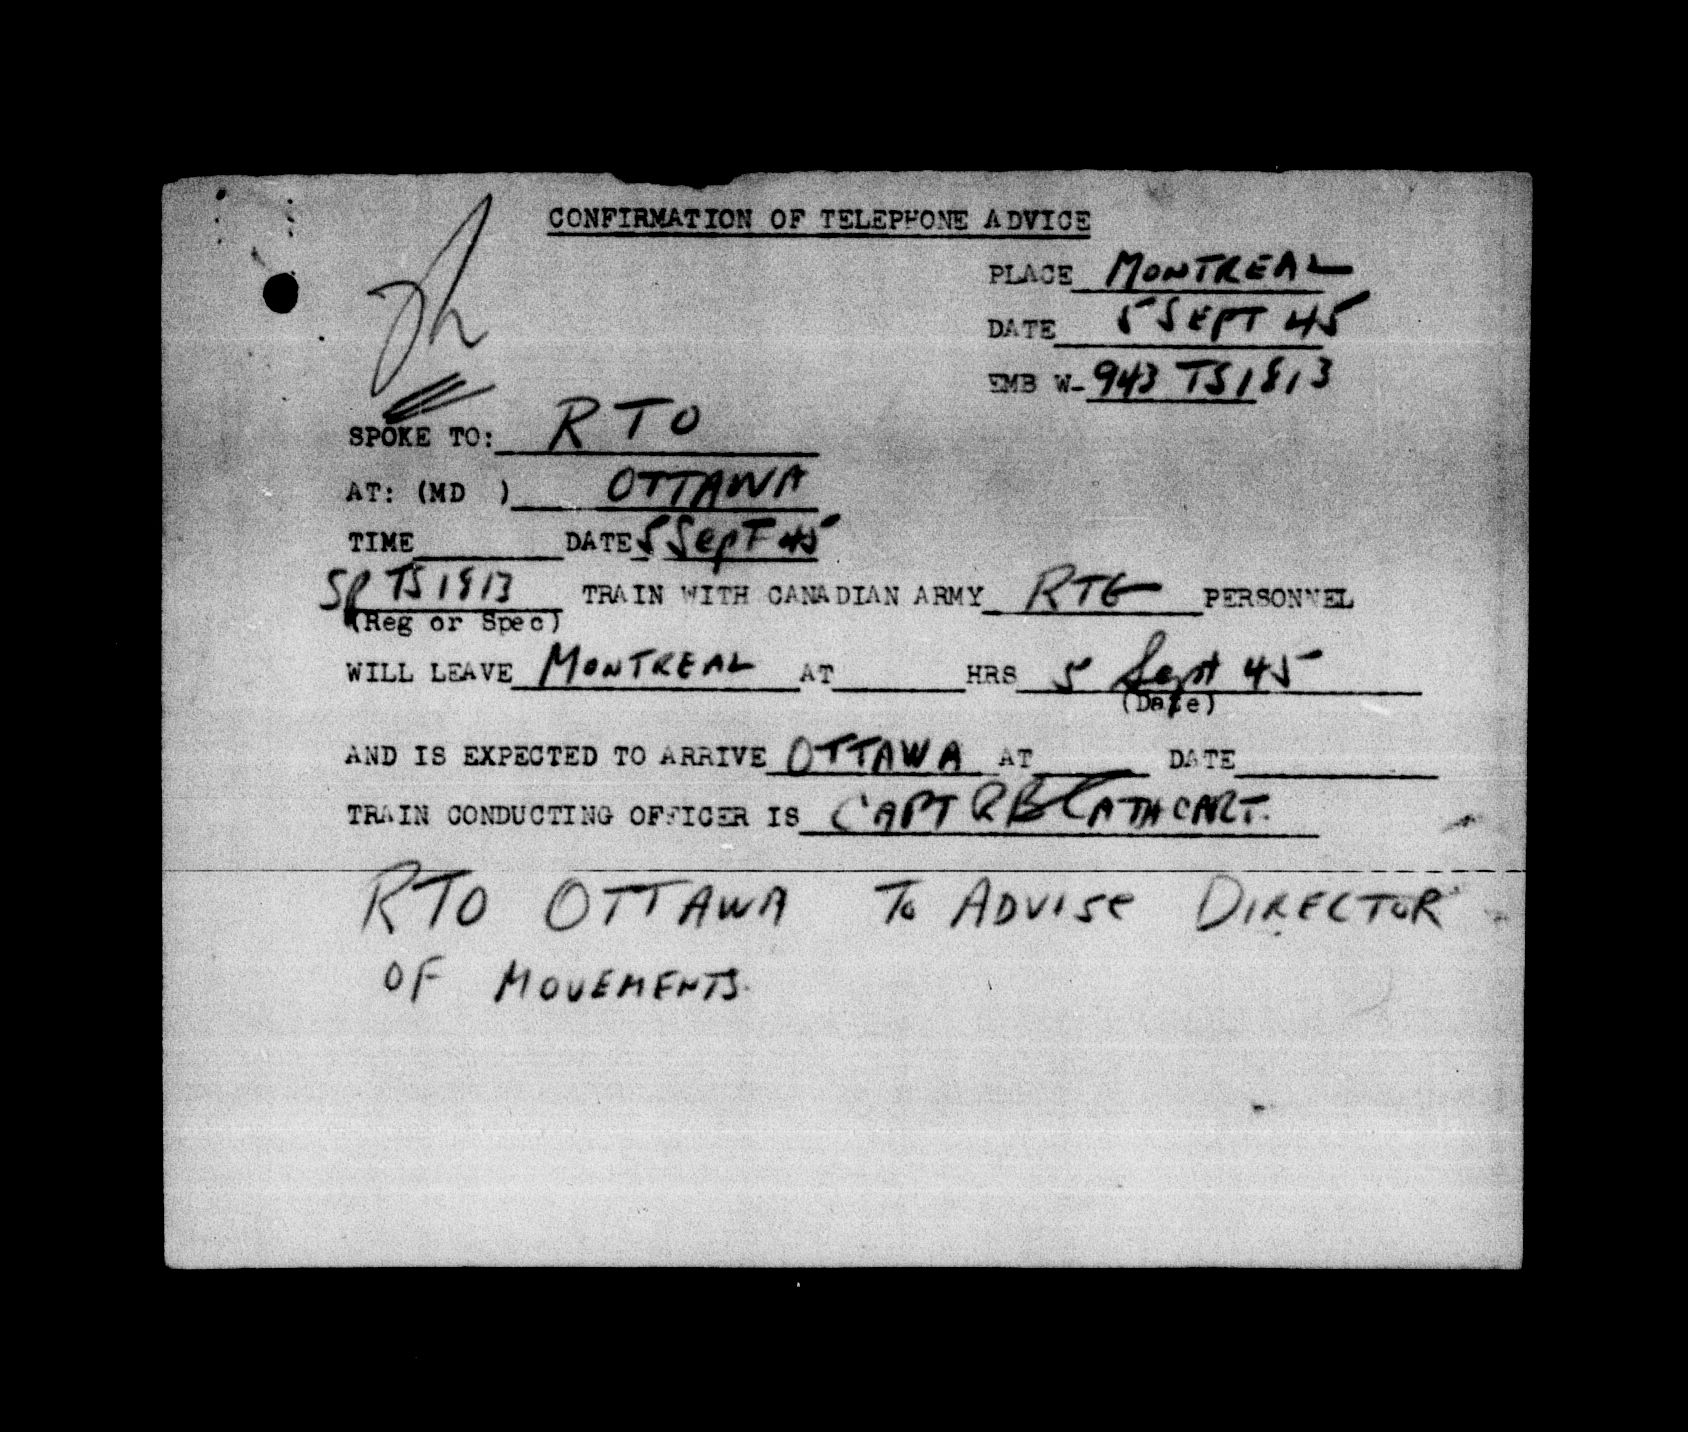 CONFIRMATION OF TELEPHONE ADVICE
PLACE MONTREAL
DATE 5 SEPT 45
EMB W- 943 TS1813
SPOKE TO: RTO
AT: (MD ) OTTAWA
TIME DATE 5 SepT 45
SP TS1813 TRAIN WITH CANADIAN ARMY RTG PERSONNEL
(Reg or Spec)
WILL LEAVE MONTREAL AT HRS 5 Sept 45
(Date)
AND IS EXPECTED TO ARRIVE OTTAWA AT DATE
TRAIN CONDUCTING OFFICER IS CAPT RB CATHCART.
RTO OTTAWA To ADVISE DIRECTOR
OF MOVEMENTS.